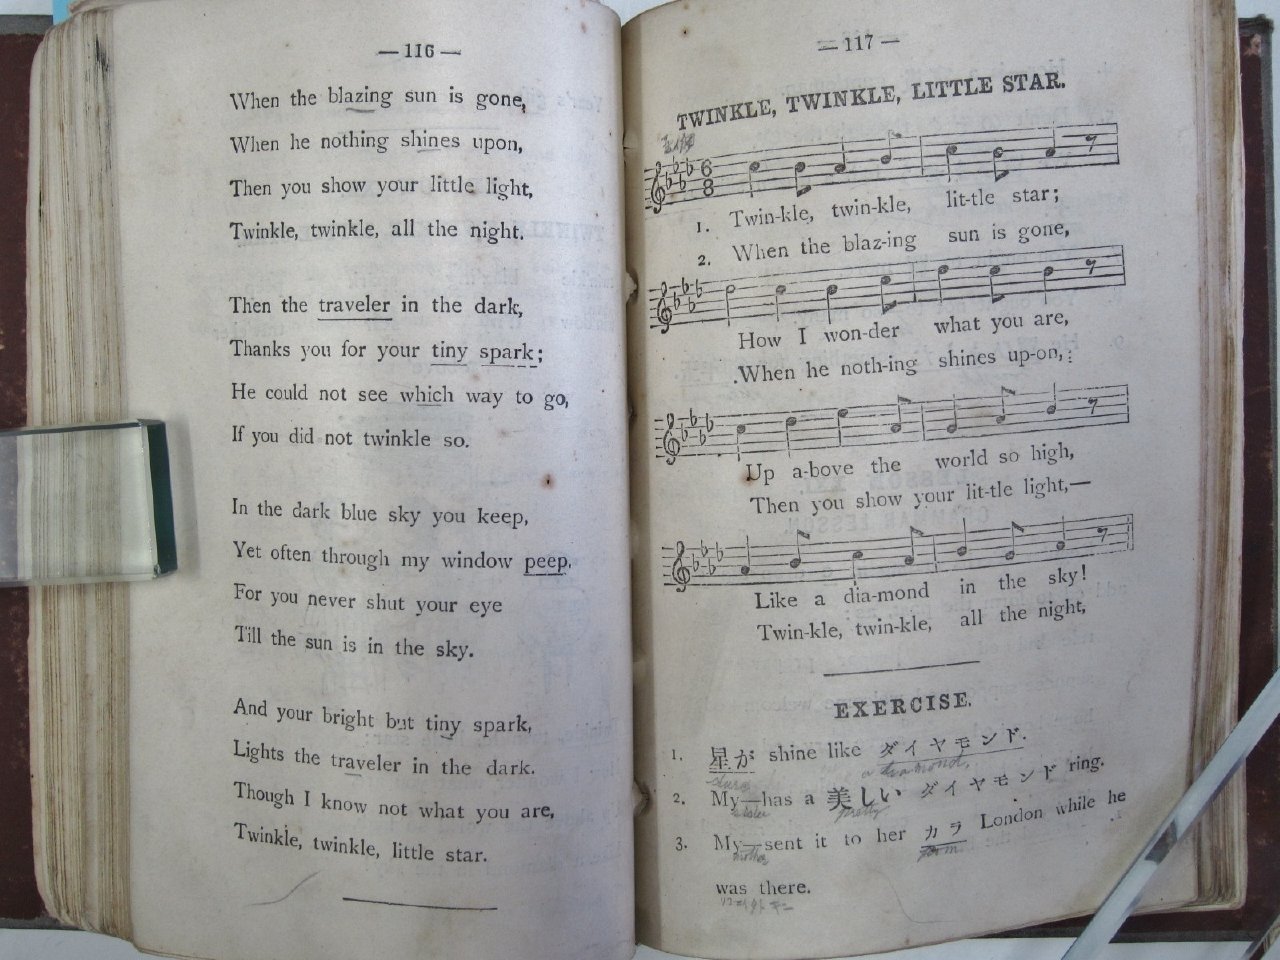 — 116 —
When the blazing sun is gone,
When he nothing shines upon,
Then you show your little light,
Twinkle, twinkle, all the night.
Then the traveler in the dark,
Thanks you for your tiny spark;
He could not see which way to go,
If you did not twinkle so.
In the dark blue sky you keep,
Yet often through my window peep,
For you never shut your eye
Till the sun is in the sky.
And your bright but tiny spark,
Lights the traveler in the dark.
Though I know not what you are,
Twinkle, twinkle, little star.
— 117 —
TWINKLE, TWINKLE, LITTLE STAR.
6
8
1. Twin-kle, twin-kle, lit-tle star;
2. When the blaz-ing sun is gone,
How I won-der what you are,
When he noth-ing shines up-on,
Up a-bove the world so high,
Then you show your lit-tle light,—
Like a dia-mond in the sky!
Twin-kle, twin-kle, all the night,
EXERCISE.
1. 星が shine like ダイヤモンド.
stars a diamond,
2. My—has a 美しい ダイヤモンド ring.
sister pretty
3. My—sent it to her カラ London while he
mother from
was there.